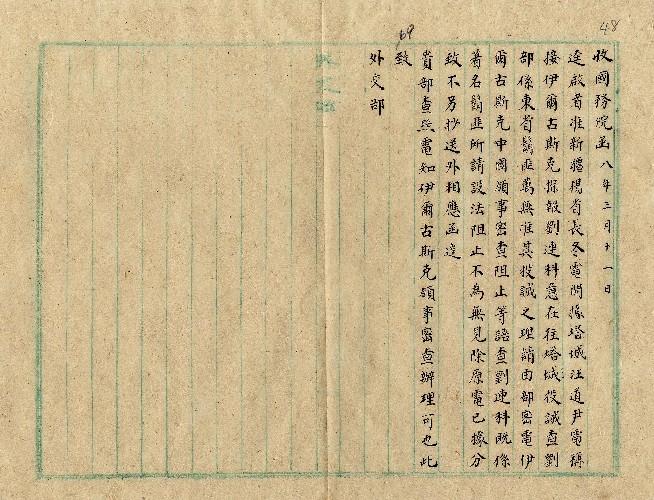 48
69
收國務院函 八年三月十一日
逕啟者准新疆楊省長冬電開據塔城汪道尹電稱
接伊爾古斯克探報劉連科意在往塔城投誠查劉
部係東省鬍匪萬無准其投誠之理請由部密電伊
爾古斯克中國領事密查阻止等語查劉連科既係
著名鬍匪所請設法阻止不為無見除原電已據分
致不另抄送外相應函達
貴部查照電知伊爾古斯克領事密查辦理可也此
致
外交部